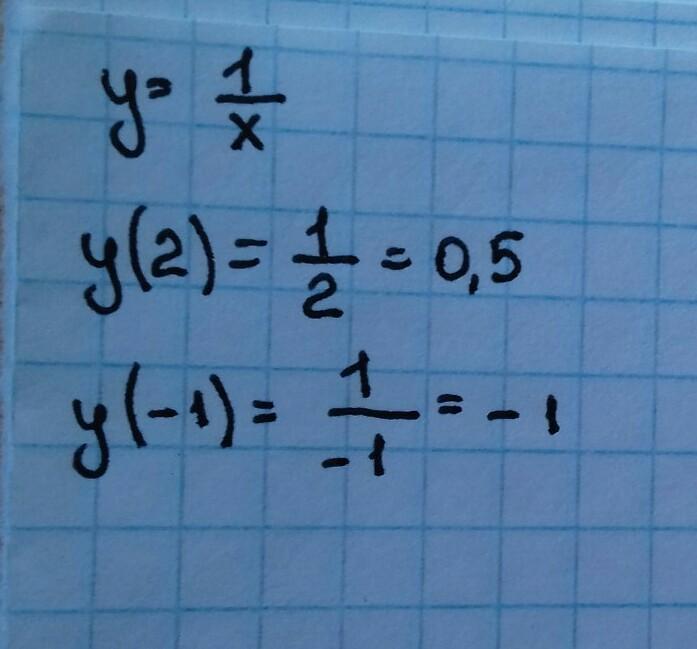 y = 1/x
y(2) = 1/2 = 0,5
y(-1) = 1/-1 = -1